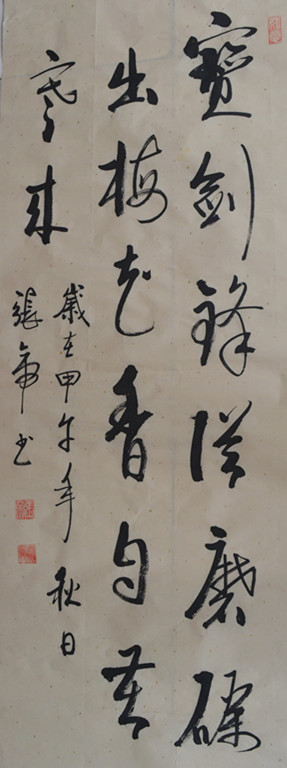 寶劍鋒從磨礪
出梅花香自苦
寒來
歲在甲午年秋日
張
書